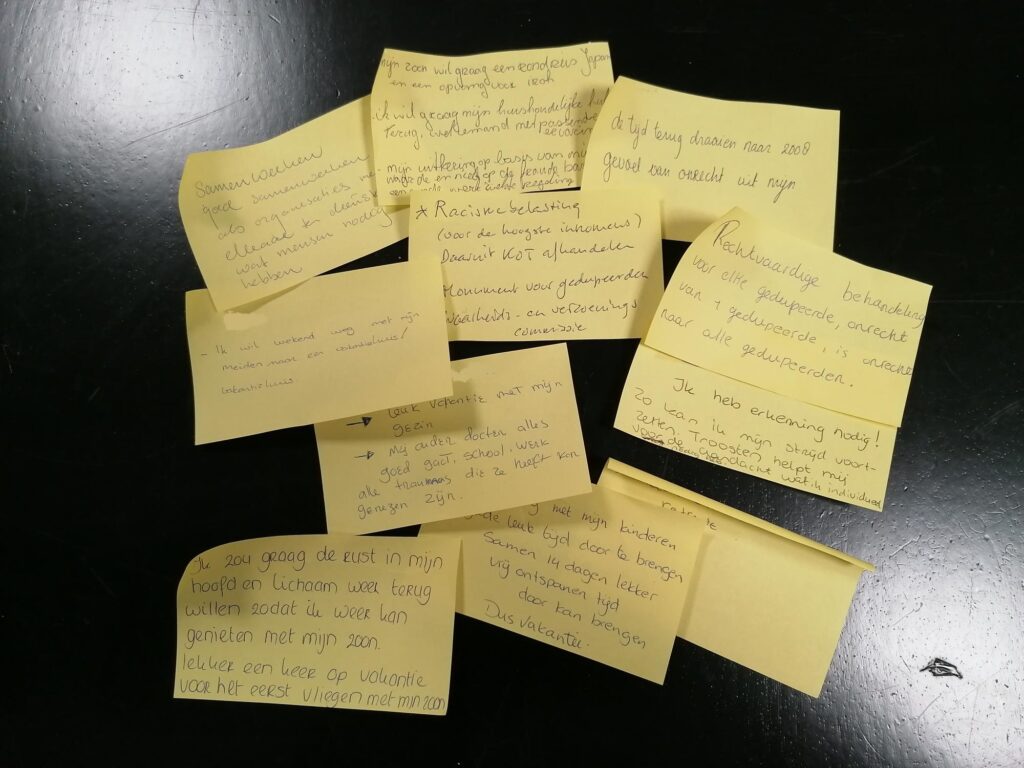 mijn zoon wil graag een rondreis Japan
en een opvang voor
ik wil graag mijn huishoudelijke
terug, wel iemand met passende
mijn uitkering op basis van mijn
waarde en niet op de
de tijd terug draaien naar 2008
gevoel van onrecht uit mijn
Samenwerken
goed samenwerken
als organisaties met
elkaar ten dienste
wat mensen nodig
hebben
* Racismebelasting
(voor de hoogste inkomens)
Daaruit KOT afhandelen
Monument voor gedupeerden
Waarheids- en verzoenings
commissie
Rechtvaardige behandeling
voor elke gedupeerde, onrecht
van 1 gedupeerde, is onrecht
naar alle gedupeerden.
- Ik wil wekend weg met mijn
meiden naar een vakantiehuis/
Ik heb erkenning nodig!
Zo kan ik mijn strijd voort-
zetten. Troosten helpt mij
voor de aandacht wat ik individueel
→ leuk vakantie met mijn
gezin
→ Mij ouder docter alles
goed gaat, school, werk
alle traumas die ze heeft kan
genezen zijn.
met mijn kinderen
leuk tijd door te brengen
Samen 14 dagen lekker
vrij ontspanen tijd
door kan brengen
Dus vakantie.
Ik zou graag de rust in mijn
hoofd en lichaam weer terug
willen zodat ik weer kan
genieten met mijn zoon.
lekker een keer op vakantie
voor het eerst vliegen met mijn zoon